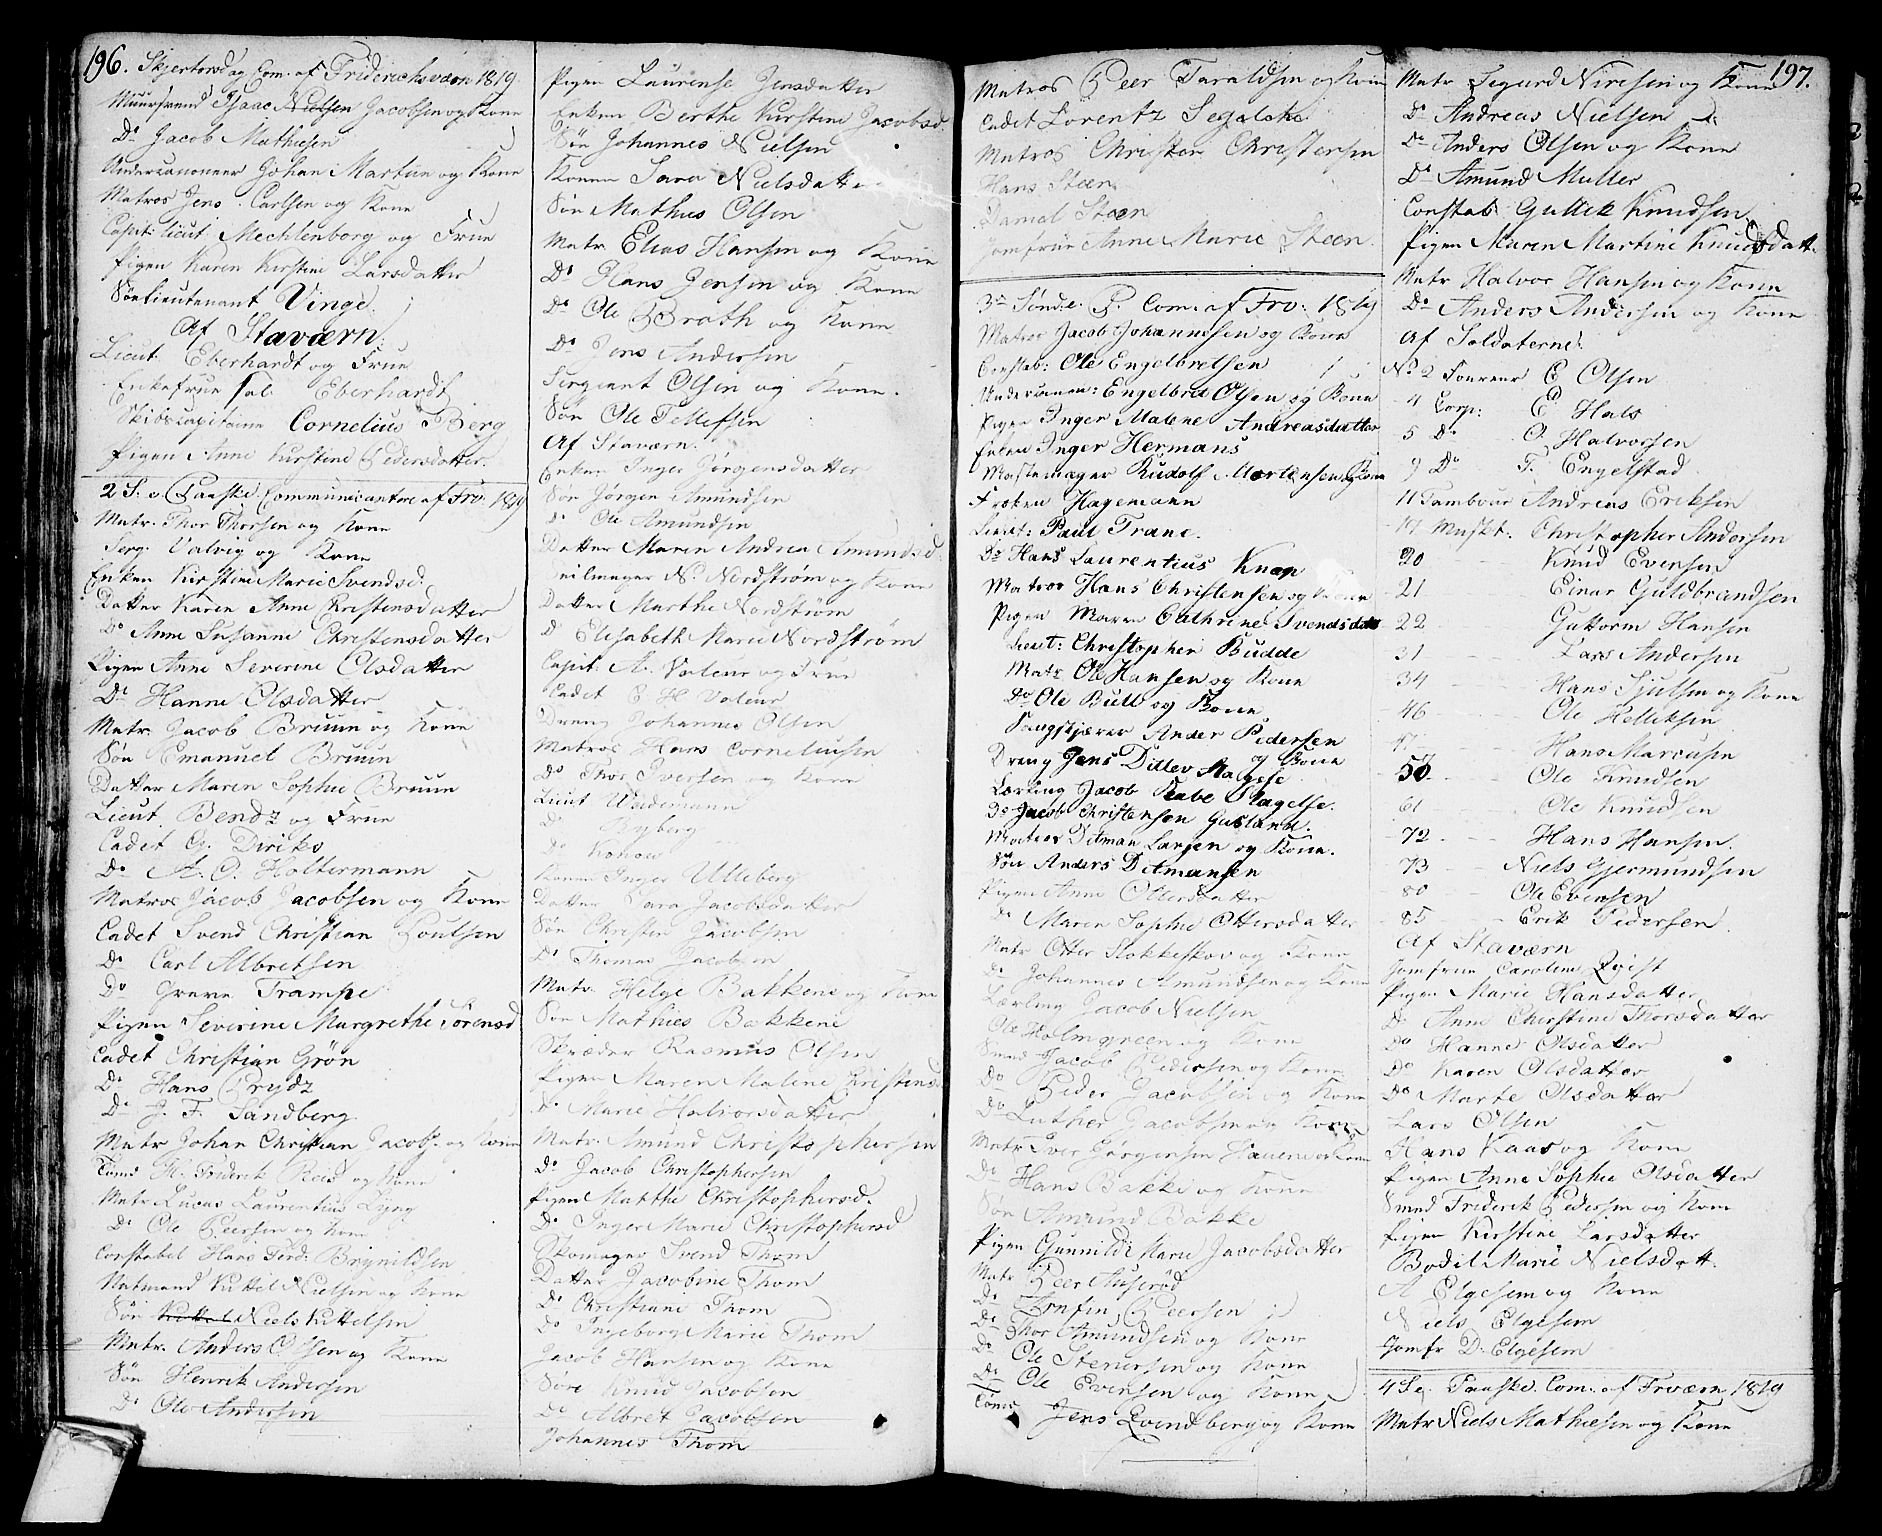 196. Skjertorsdag Com. af Friderichsværn 1819.
Muursvend Isaac Nielsen Jacobsen og Kone
Do Jacob Mathiesen
Undercanoneer Johan Martin og Kone
Matros Jens Carlsen og Kone
Capit. lieut. Mechlenborg og Frue
Pigen Karen Kirstine Larsdatter
Sølieutenant Vinge
Af Staværn:
Lieut. Eberhardt og Frue
Enkefrue sal. Eberhardt
Skibscapitaine Cornelius Berg
Pigen Anne Kirstine Pedersdatter.
2 S. e. Paaske Communicantere af Frv. 1819
Matr. Thor Thorsen og Kone
Serg. Valvig og Kone
Enken Kirstine Marie Svendsd.
Datter Karen Anne Christensdatter
Do Anne Susanne Christensdatter
Pigen Anne Severine Olsdatter
Do Hanne Olsdatter
Matr. Jacob Bruun og Kone
Søn Emanuel Bruun
Datter Maren Sophie Bruun
Lieut. Bendz og Frue
Cadet G. Diriks
Do A. O. Holtermann
Matros Jacob Jacobsen og Kone
Cadet Svend Christian Poulsen
Do Carl Albretsen
Do Greve Trampe
Pigen Severine Margrethe Sørensd
Cadet Christian Grøn
Do Hans Prydz
Do J. F. Sandberg
Matr Johan Christian Jacobs. og Kone
Tømd M. Friderik Reis og Kone
Matr. Lucas Laurentius Lyng
Do Ole Peersen og Kone
Constabel Hans Ferd. Brynildsen
Matmand Kittel Nielsen og Kone
Søn Kittel Niels Kittelsen
Matr. Anders Olsen og Kone
Søn Henrik Andersen
Do Ole Andersen
Pigen Laurense Jensdatter
Enken Berthe Kirstine Jacobsd.
Søn Johannes Nielsen
Konen Sara Nielsdatter
Søn Mathies Olsen
Matr. Elias Hansen og Kone
Do Hans Jensen og Kone
Do Ole Broth og Kone
Do Jens Andersen
Sergeant Olsen og Kone.
Søn Ole Tellefsen
Af Staværn.
Enken Inger Jørgensdatter
Søn Jørgen Amundsen
Do Ole Amundsen
Datter Maren Andrea Amundsd.
Seilmager N. Nordstrøm og Kone
Datter Marthe Nordstrøm
Do Elisabeth Marie Nordstrøm
Capit. A. Valeur og Frue
Cadet C. H. Valeur
Dreng Johannes Olsen
Matros Hans Corneliusen
Do Thor Iversen og Kone
Lieut Weidemann
Do Ryberg
Do Konow
Konen Inger Ulleberg
Datter Sara Jacobsdatter
Søn Christen Jacobsen
Do Thomas Jacobsen
Matr. Helge Bakkene og Kone
Søn Mathies Bakkene
Skræder Rasmus Olsen
Pigen Maren Malene Christensd.
Do Marie Halvorsdatter
Matr. Amund Christophersen
Do Jacob Christophersen
Pigen Marthe Christophersd.
Do Inger Marie Christophersd
Skomager Svend Thom
Datter Jacobine Thom
Do Christiane Thom
Do Ingeborg Marie Thom
Jacob Hansen og Kone
Søn Knud Jacobsen
Do Albret Jacobsen
Johannes Thom
Matros Peer Taraldsen og Kone
Cadet Lorentz Segelcke
Matros Christen Christensen
Hans Steen
Daniel Steen
Jomfrue Anne Marie Steen.
3die Sønd. e. P. Com. af Frv: 1819
Matros Jacob Johannesen og Kone
Constab: Ole Engelbretsen
Undercanon: Engelbret Olsen og Kone
Pigen Inger Malene Andreasdatter
Enken Inger Hermans
Mastemager Rudolf Mortensen og Kone
Frøken Hagemann
Lieut: Paul Trane.
Do Hans Laurentius Knap
Matros Hans Christensen og Kone
Pigen Maren Cathrine Svendsdatt
Lieut: Christopher Budde
Matr Ole Hansen og Kone
Do Ole Bull og Kone
Tougskjærer Ander Pedersen
og Kone
Dreng Jens Ditlev Slagelse
Lærling Jacob Rabe Slagelse.
Do Jacob Christensen
Matros Ditman Larsen og Kone.
Søn Anders Ditmansen
Pigen Anne Ottersdatter
Do Maren Sophie Ottersdatter
Matr Otter Stokkeskov og Kone
Do Johannes Amundsen og Kone
Lærling Jacob Nielsen
Ole Holmgreen og Kone
Smed Jacob Pedersen og Kone
Do Peder Jacobsen og Kone
Do Luther Jacobsen og Kone
Matr Iver Jørgensen Hauene og Kone
Do Hans Bakke og Kone
Søn Amund Bakke
Pigen Gunnilde Marie Jacobsdatter
Matr Peer Auserød
Do Arnfin Peersen
Do Thor Amundsen og Kone
Do Ole Stenersen og Kone
Do Ole Evensen og Kone
Tømr Jens Qvendberg og Kone
197.
Matr Segurd Niresen og Kone
Do Andreas Nielsen
Do Anders Olsen og Kone
Do Amund Muller
Constab. Gullik Knudsen
Pigen Maren Martine Knudsdatt.
Matr Halvor Hansen og Kone
Do Anders Andersen og Kone
Af Soldaterne:
No 2 Foureer E. Olsen
4 Corp: E. Hals
5 Do O. Halvorsen
9 Do F. Engelstad
11 Tambour Andreas Eriksen
17 Musket. Christopher Andersen
20 Knud Evensen
21 Einar Guldbrandsen
22 Guttorm Hansen
31 Lars Andersen
34 Hans Juulsen og Kone
46 Ole Helliksen
47 Hans Marcusen
50 Ole Knudsen
61 Ole Knudsen
72 Hans Hansen.
73 Niels Gjermundsen
80 Ole Evensen
85 Erik Pedersen.
Af Staværn
Jomfrue Caroline Qvist
Pigen Marie Hansdatter
Do Anne Chirstine Thorsdatter
Do Hanne Olsdatter
Do Karen Olsdatter
Do Marte Olsdatter
Lars Olsen
Hans Kaas og Kone
Pigen Anne Sophie Olsdatter
Smed Friderik Pedersen og Kone
Pigen Kirstine Larsdatter
Bodil Marie Nielsdatt.
A Elgesem og Kone
Niels Elgesem
Jomfr D. Elgesem
4 S. e. Paaske. Com. af Frværn 1819
Matr Niels Mathiesen og Kone